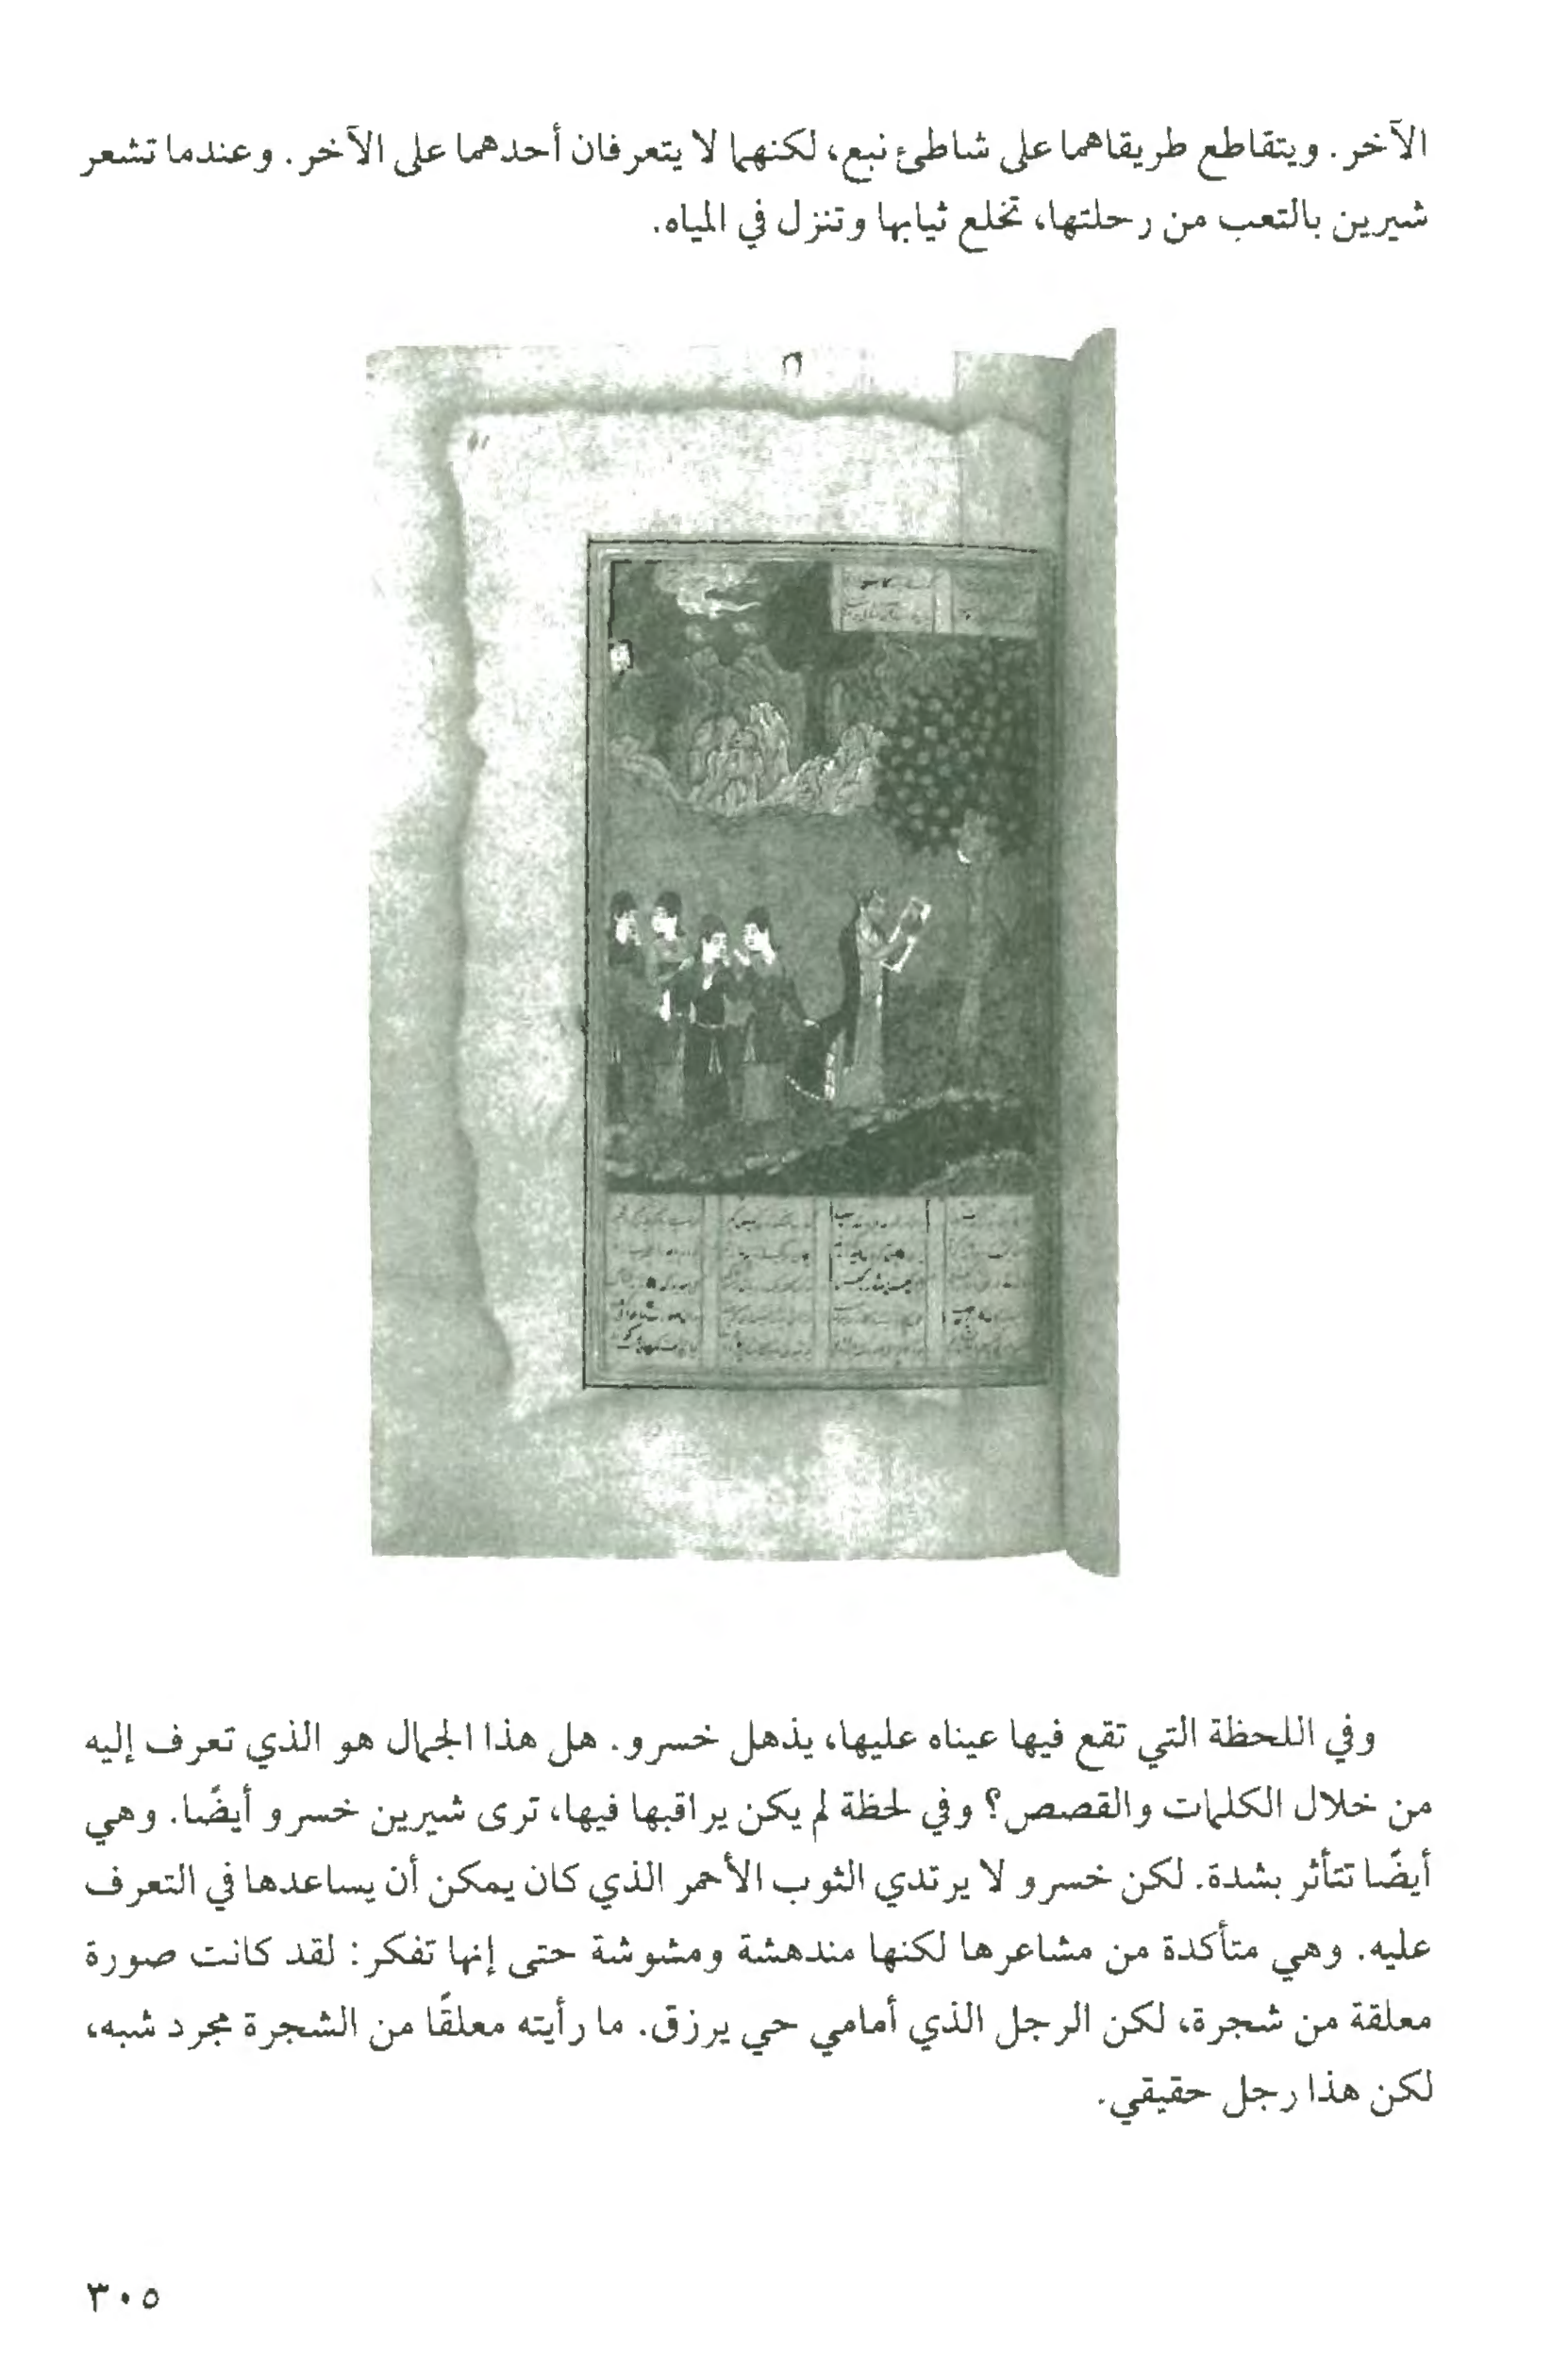 الآخر. ويتقاطع طريقاهما على شاطئ نبع، لكنهما لا يتعرفان أحدهما على الآخر. وعندما تشعر
شيرين بالتعب من رحلتها، تخلع ثيابها وتنزل في المياه.
وفي اللحظة التي تقع فيها عيناه عليها، يذهل خسرو. هل هذا الجمال هو الذي تعرف إليه
من خلال الكلمات والقصص؟ وفي لحظة لم يكن يراقبها فيها، ترى شيرين خسرو أيضًا. وهي
أيضًا تتأثر بشدة. لكن خسرو لا يرتدي الثوب الأحمر الذي كان يمكن أن يساعدها في التعرف
عليه. وهي متأكدة من مشاعرها لكنها مندهشة ومشوشة حتى إنها تفكر: لقد كانت صورة
معلقة من شجرة، لكن الرجل الذي أمامي حي يرزق. ما رأيته معلقًا من الشجرة مجرد شبه،
لكن هذا رجل حقيقي.
٣٠٥